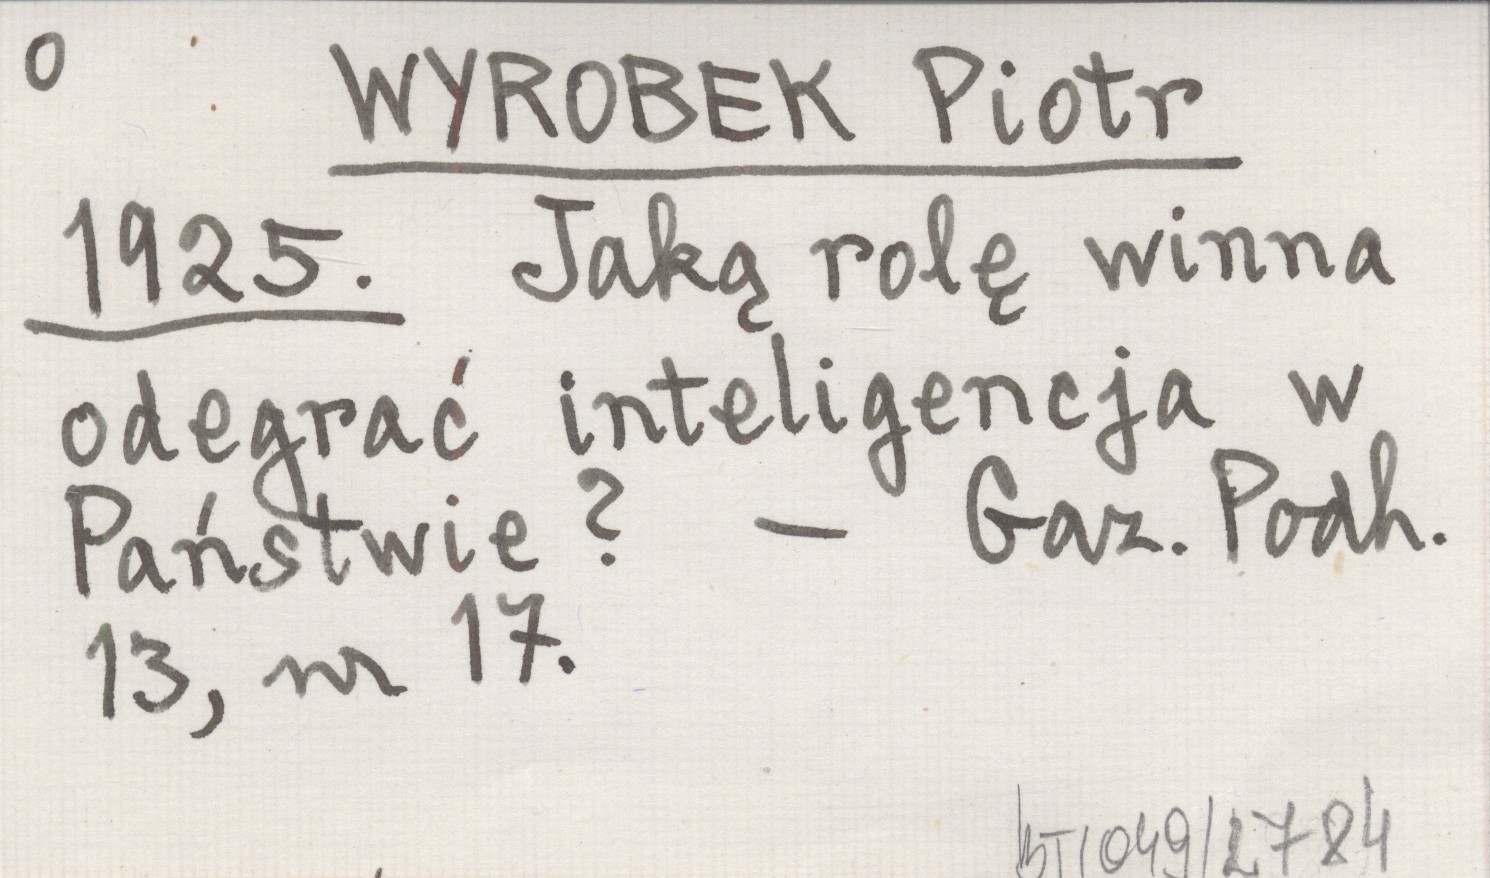 O
WYROBEK Piotr
1925. Jaką rolę winna
odegrać inteligencja w
Państwie? – Gaz. Podh.
13, nr 17.
BT/049/2784